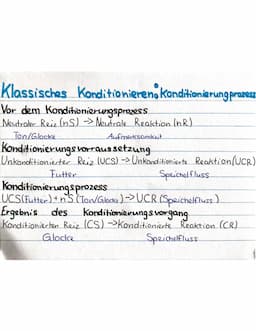 Klassisches Konditionieren: Konditionierungprozess
Vor dem Konditionierungsprozess
Neutraler Reiz (nS) → Neutrale Reaktion (nR)
Ton/Glocke Aufmerksamkeit
Konditionierungsvorraussetzung
Unkonditionierter Reiz (UCS) → Unkonditionierte Reaktion (UCR)
Futter Speichelfluss
Konditionierungsprozess
UCS (Futter) + nS (Ton/Glocke) → UCR (Speichelfluss)
Ergebnis des Konditionierungsvorgang
Konditionierten Reiz (CS) → Konditionierte Reaktion (CR)
Glocke Speichelfluss